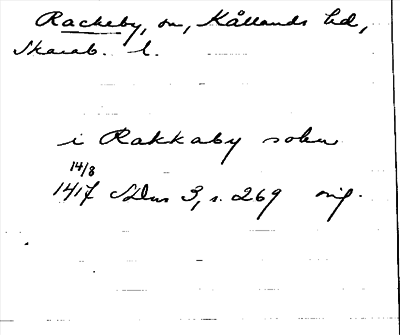 Rackeby, sn, Kållands hd,
Skarab. l.
i Rakkaby sokn
14/8
1417 SDns 3, s. 269 orig.